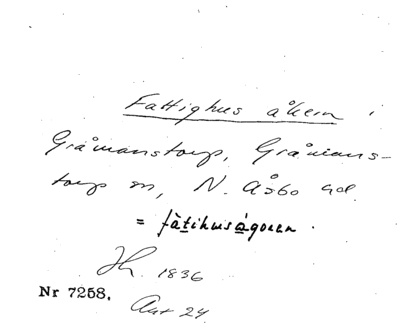 Fattighus åkern i
Gråmanstorp, Gråmans-
torp sn, N. Åsbo hd.
= fàtihusågoren.
1836
Nr 7258.
Akt 24